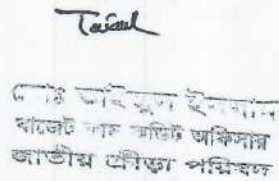 মোঃ ইসলাম
বাজেট কাম অডিট অফিসার
জাতীয় ক্রীড়া পরিষদ